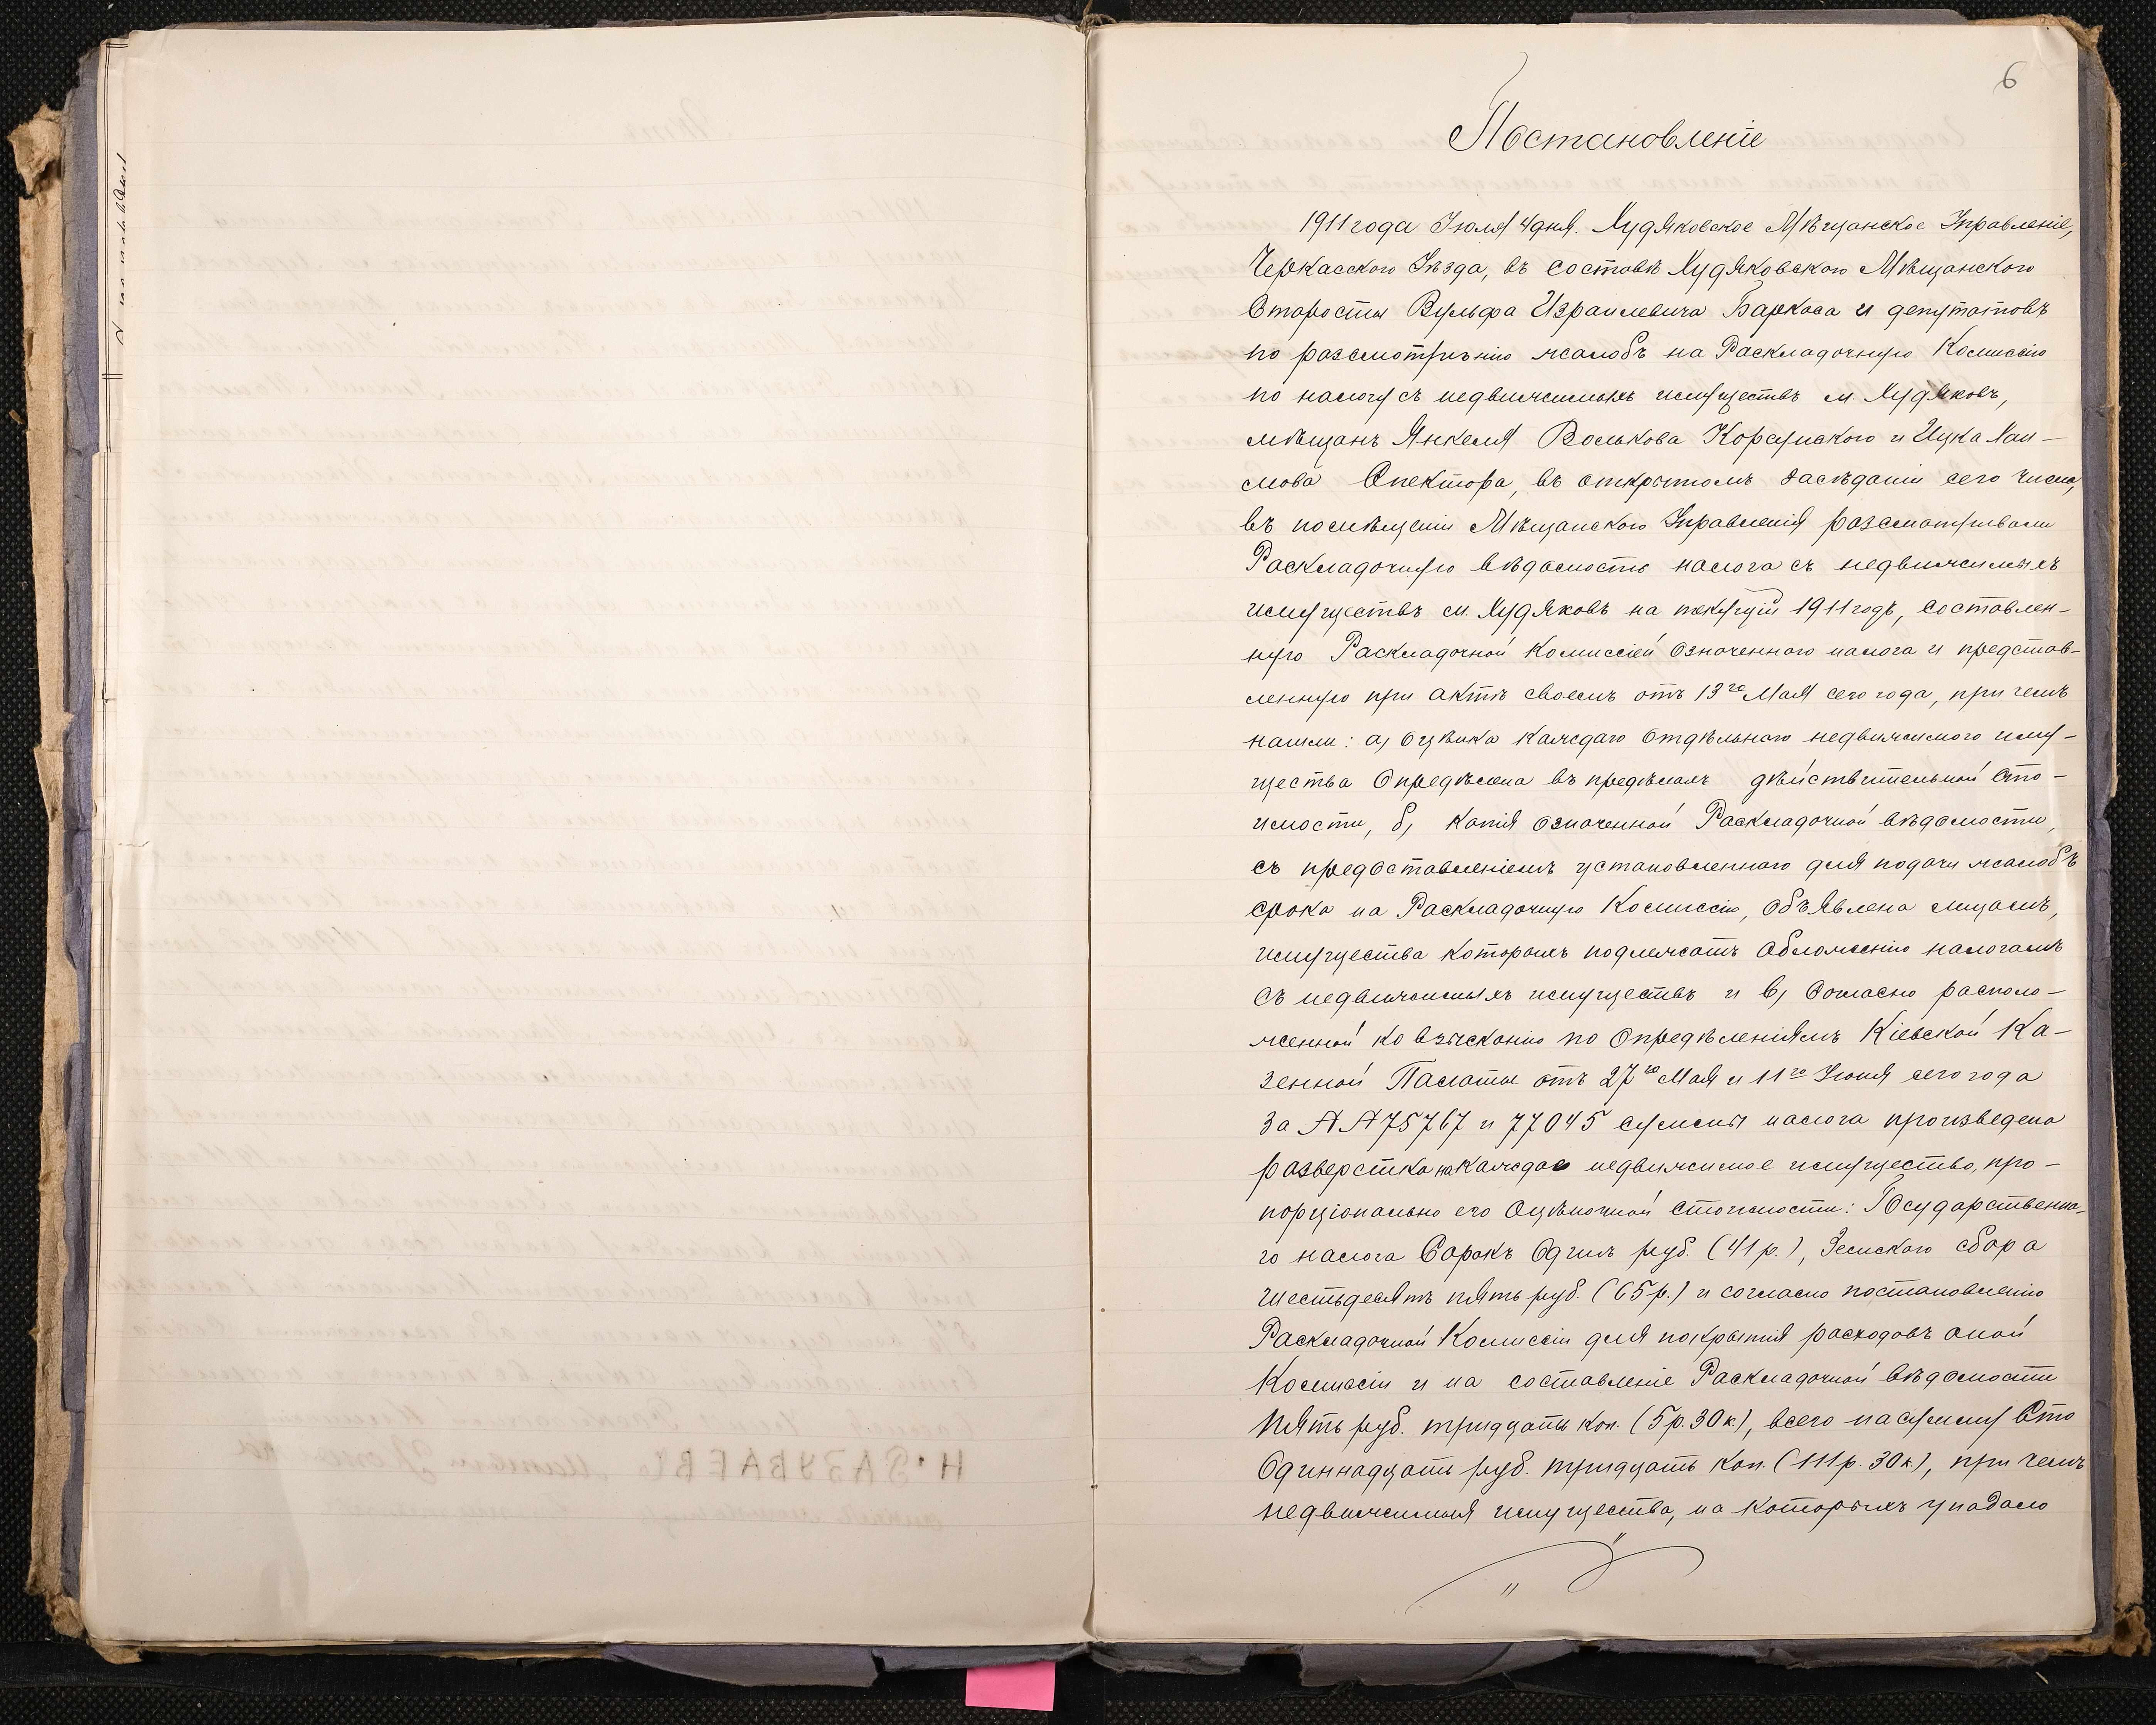 6
Постановленіе
1911 года Іюля 4 дня. Худяковское Мѣщанское Управленіе,
Черкасскаго Уѣзда, въ составѣ Худяковскаго Мѣщанского
Старосты Вульфа Израилевича Баркаса и депутатовъ
по разсмотрѣнію жалобъ на Раскладочную Комиссію
по налогу съ недвижимыхъ имуществъ м. Худяковъ,
мѣщанъ Янкеля Волькова Корсунского и Ицка Хаи-
мова Спектора, въ открытомъ засѣданіи сего числа,
въ помѣщеніи Мѣщанского Управленія разсматривали
Раскладочную вѣдомость налога съ недвижимыхъ
имуществъ м. Худяковъ на текущій 1911 годъ, составлен-
ную Раскладочной Комиссіей означенного налога и представ-
ленную при актѣ своемъ отъ 13го Мая сего года, при чемъ
нашли: а) оцѣнка каждаго отдѣльнаго недвижимого иму-
щества опредѣлена въ предѣлахъ дѣйствительной сто-
имости, б) копія означенной Раскладочной вѣдомости,
съ предоставленіемъ установленного для подачи жалобъ
срока на Раскладочную Комиссію, объявлена лицамъ,
имущества которыхъ подлежатъ обложенію налогамъ
съ недвижимыхъ имуществъ и в) согласно располо-
женной ко взысканію по опредѣленіямъ Кіевской Ка-
зенной Палаты отъ 27го Мая и 11го Іюня сего года
за №№ 75767 и 77045 суммы налога произведена
разверстка на каждое недвижимое имущество, про-
порціонально его оцѣночной стоимости: Государственна-
го налога Сорокъ Одинъ руб. (41 р.), Земскаго сбора
шестьдесятъ пять руб. (65 р.) и согласно постановленію
Раскладочной Комиссіи для покрытія расходовъ оной
Комиссіи и на составленіе Раскладочной вѣдомости
пять руб. тридцать коп. (5 р. 30 к.), всего на сумму Сто
Одиннадцать руб. тридцать коп. (111 р. 30 к.), при чемъ
недвижимыя имущества, на которыхъ упадало